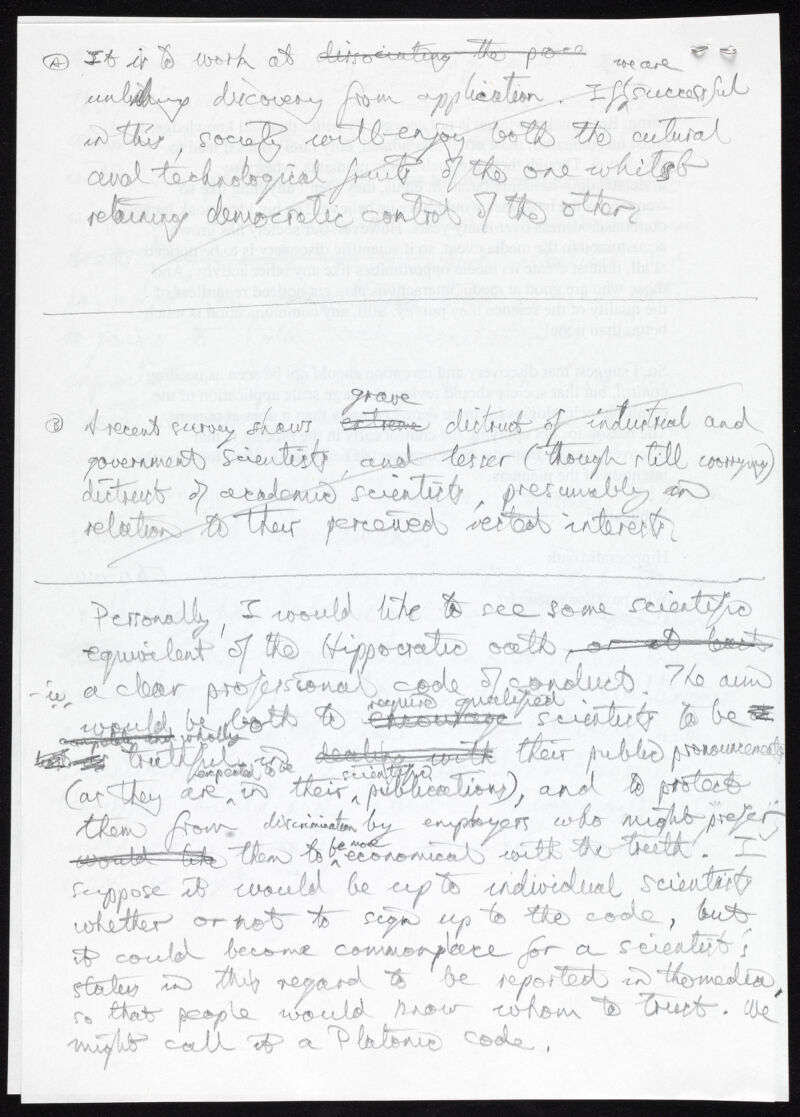 (A) It is to work at dissociating the proce
we are
unlinking discovery from application. If successful
in this, society will enjoy both the cultural
and technological fruits of the one whilst
retaining democratic control of the other.
grave
(B) A recent survey shows extreme distrust of industrial and
government scientists, and lesser (though still worrying)
distrust of academic scientists, presumably in
relation to their perceived vested interests.
Personally, I would like to see some scientific
equivalent of the Hippocratic oath, or at least
- ie, a clear professional code of conduct. The aim
require qualified
would be both to encourage scientists to be
wholly
truthful in dealing with their public pronouncements
expected to be scientific
(as they are in their publications), and to protect
them from discrimination by employers who might "prefer"
be more
would like them to economical with the truth. I
suppose it would be up to individual scientists
whether or not to sign up to the code, but
it could become commonplace for a scientist's
status in this regard to be reported in the media,
so that people would know whom to trust. We
might call it a Platonic code.